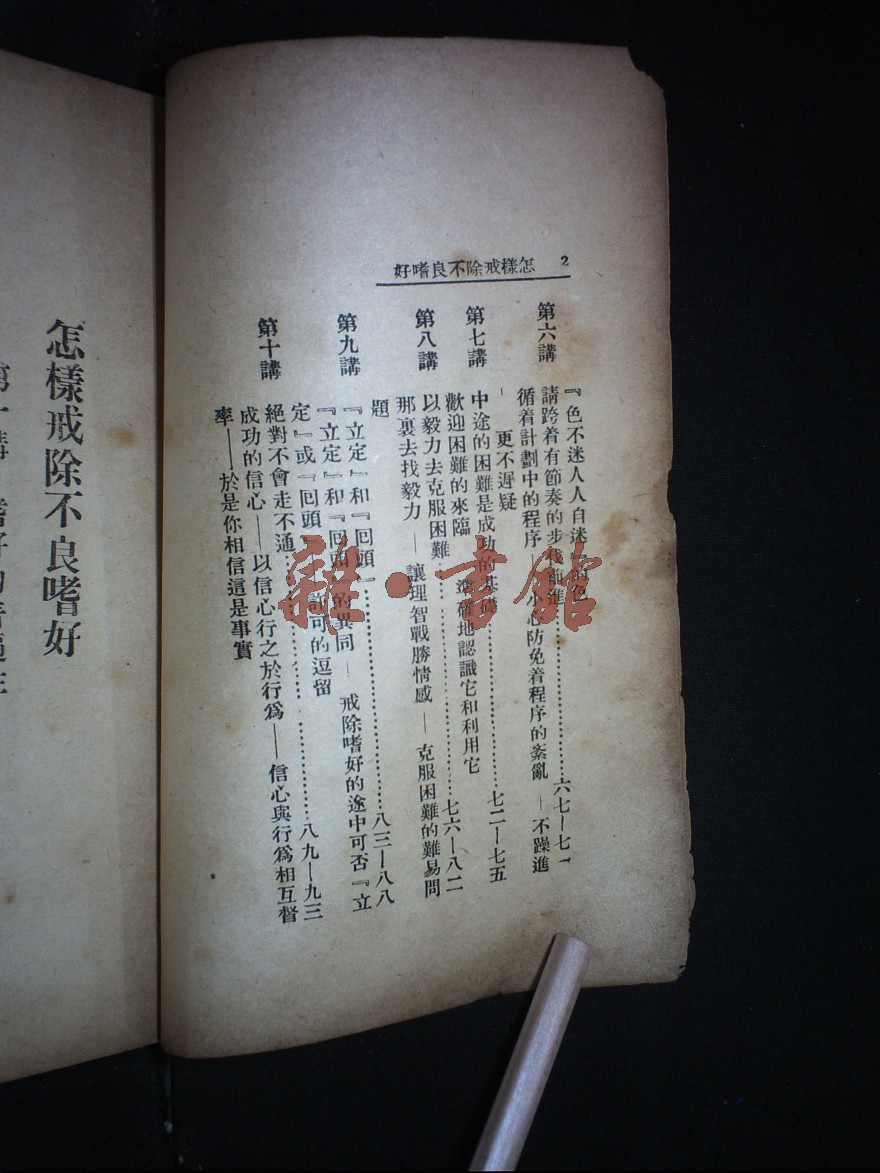 2 怎樣戒除不良嗜好
『色不迷人人自迷』的色
第六講 請跨着有節奏的步伐前進……六七—七一
循着計劃中的程序 小心防免着程序的紊亂 — 不躁進
— 更不遲疑
第七講 中途的困難是成功的基礎……七二—七五
歡迎困難的來臨 確地認識它和利用它
第八講 以毅力去克服困難……七六—八二
那裏去找毅力 — 讓理智戰勝情感 — 克服困難的難易問
題
第九講 『立定』和『回頭』……八三—八八
『立定』和『回頭』的異同 — 戒除嗜好的途中可否『立
定』或『回頭』— 許可的逗留
第十講 絕對不會走不通……八九—九三
成功的信心——以信心行之於行爲——信心與行爲相互督
率——於是你相信這是事實
怎樣戒除不良嗜好
雜·書館